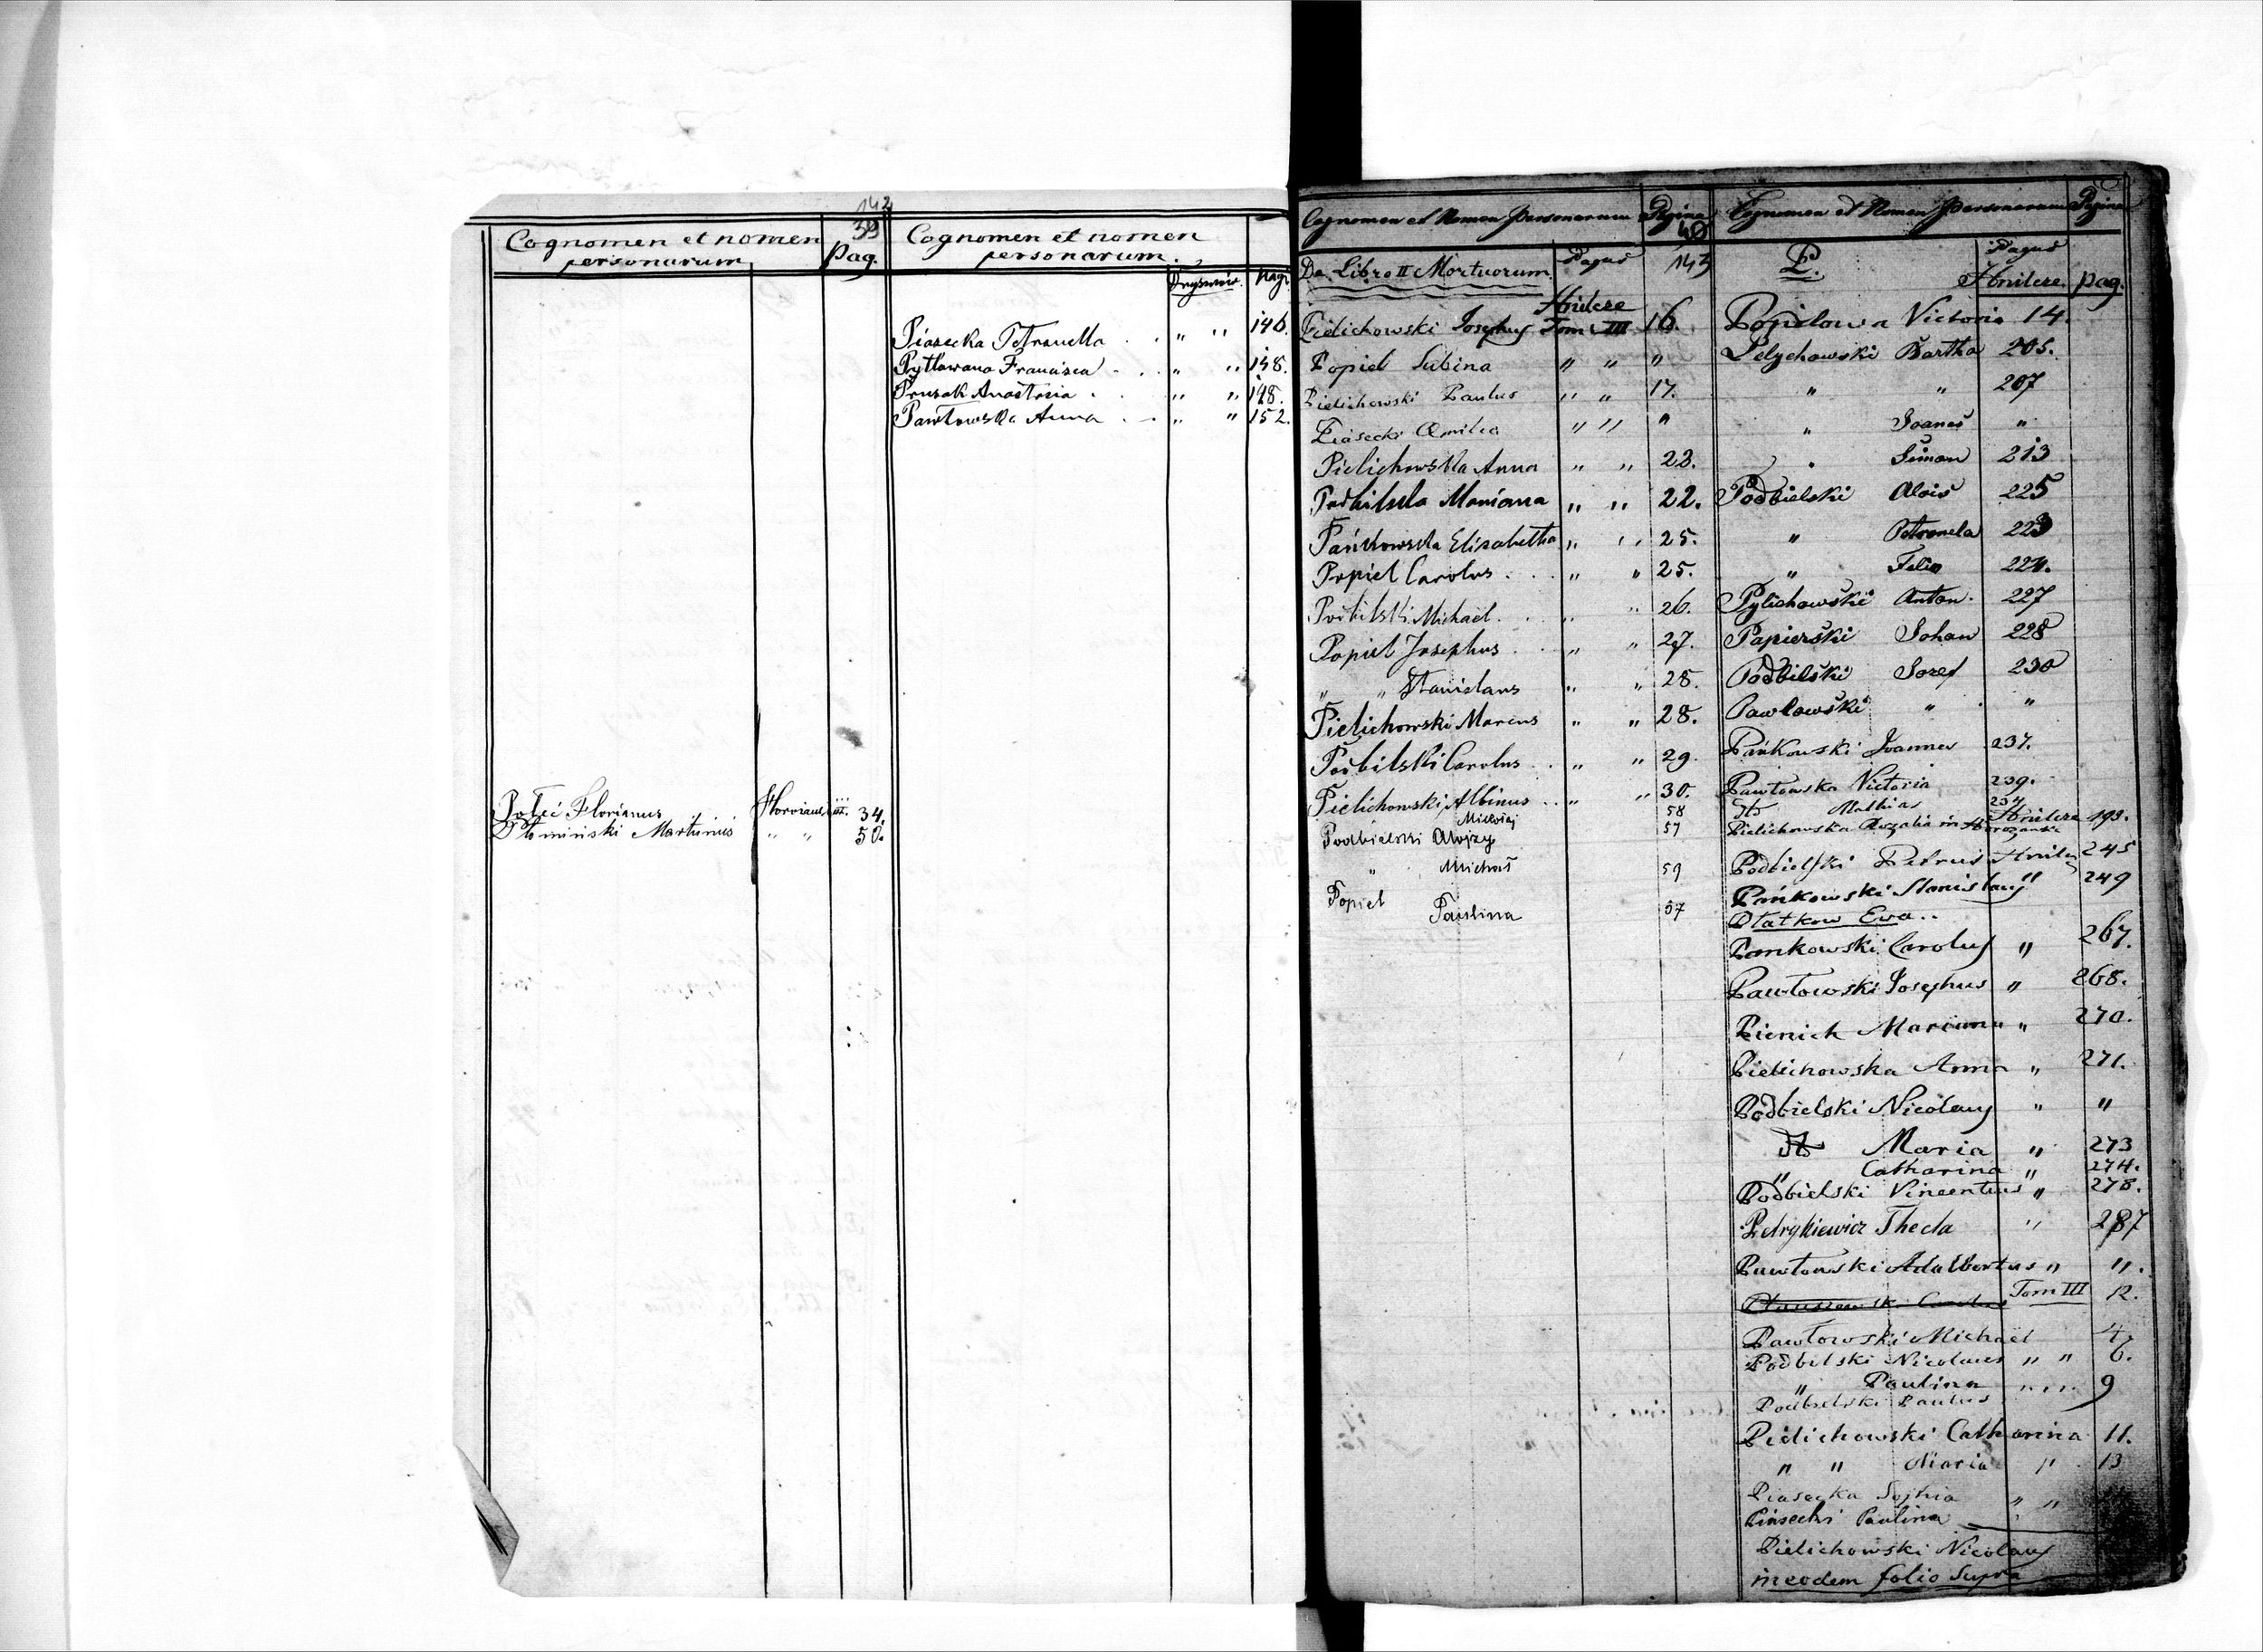 142
39
Cognomen et nomen
personarum
Pag.
Potić Florianus
34.
Martinus " " 50.
Cognomen et nomen
personarum.
pag.
Piasecka Petronella . . " " 146.
Pytlowana Francisca . . " " 148.
Prusak Anastasia . " " 148.
Pawłowska Anna . . " " 152.
Cognomen et Nomen Personarum Pagina
40
De Libro II Mortuorum Pagus 143
Hnilcze
Pielichowski Josephus Tom III 16.
Popiel Sabina " " "
Pielichowski Paulus " " 17.
Piasecki " " "
Pielichowska Anna " " 22.
Mariana " " 22.
Pańkowska Elisabetha " " 25.
Popiel Carolus . . " " 25.
Podbilski Michael . . " " 26.
Popiel Josephus . . " " 27.
" " Stanislaus " " 28.
Pielichowski Marcus " " 28.
Podbilski Carolus . . " " 29.
Pielichowski Albinus . . " " 30.
Mikołaj 58
Podbielski Alojzy 57
" Michał 59
Popiel Paulina 57
Cognomen et Nomen Personarum Pagina
P. Pagus
Hnilcze pag.
Popielowa Victoria 14.
Pelychowski Bartha 205.
" " 207
" Joanes "
" Simon 213
Podbielski Alois 225
" Petronela 223
" 224.
Pylichowski Anton. 227
Papierski Johan 228
Podbilski Jozef 230
Pawlowski " "
Pańkowski Joannes 237.
Pawłowska Victoria 239.
Mathias 234
Pielichowska Rozalia in Hnilcze 193.
Podbielski Petrus 245
Pańkowski Stanislaus " 249
Ewa ..
Pankowski Carolus " 267.
Pawłowski Josephus " 268.
Pienich Marianna " 270.
Pielichowska Anna " 271.
Podbielski Nicolaus " "
Maria " 273
" Catharina " 274.
Podbielski Vincentius " 278.
Petrykiewicz Thecla " 287
Pawłowski Adalbertus " ".
Tom III 12.
Pawłowski Michael 4.
Podbilski Nicolaus " " 6.
" Paulina " " 9
Podbielski Paulus
Pielichowski Catharina 11.
" " Maria " 13
Piasecka Sophia " "
Piasecki Paulina
Pielichowski Nicolaus
in eodem folio supra